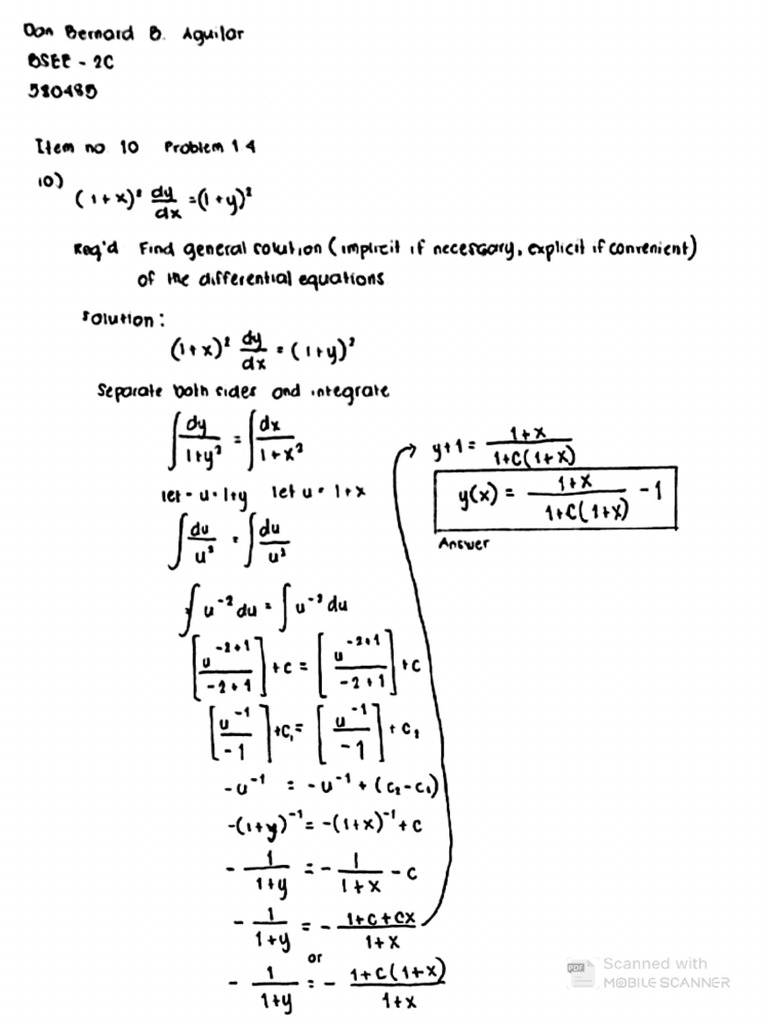 Don Bernard B. Aguilar
BSEE - 2C
580485
Item no 10 Problem 1 4
10) (1+x)² dy/dx = (1+y)²
Req'd Find general solution (implicit if necessary, explicit if convenient)
of the differential equations
Solution:
(1+x)² dy/dx = (1+y)²
Separate both sides and integrate
∫ dy/1+y² = ∫ dx/1+x²
let - u = 1+y let u = 1+x
∫ du/u² = ∫ du/u²
∫ u⁻² du = ∫ u⁻² du
[u⁻²⁺¹/-2+1] + c = [u⁻²⁺¹/-2+1] + c
[u⁻¹/-1] + c₁ = [u⁻¹/-1] + c₂
-u⁻¹ = -u⁻¹ + (c₂-c₁)
-(1+y)⁻¹ = -(1+x)⁻¹ + c
- 1/1+y = - 1/1+x - c
- 1/1+y = - 1+c+cx/1+x
or
- 1/1+y = - 1+c(1+x)/1+x
y+1 = 1+x/1+c(1+x)
y(x) = 1+x/1+c(1+x) - 1
Answer
PDF Scanned with
MOBILE SCANNER